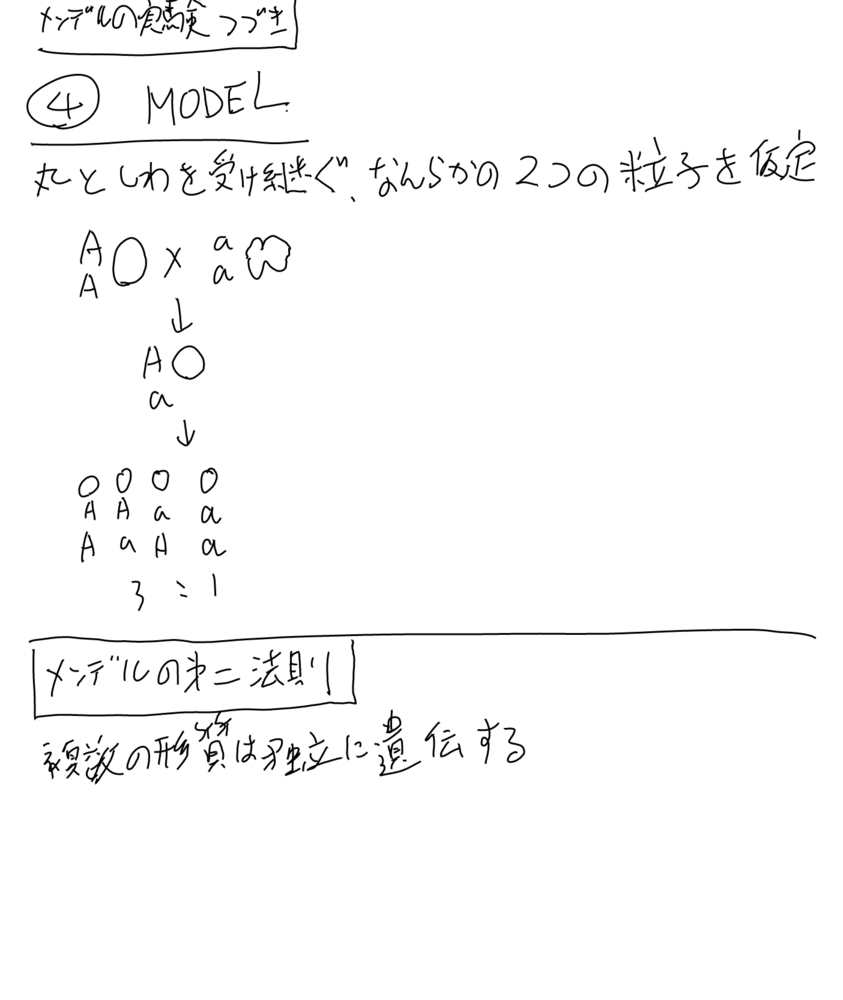 メンデルの実験つづき
④ MODEL
丸としわを受け継ぐ、なんらかの2つの粒子を仮定
A × a
A a
↓
A
a
↓
A A a a
A a A a
3 : 1
メンデルの第二法則
複数の形質は独立に遺伝する